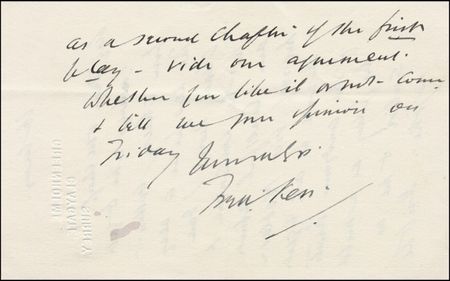 as a second Chapter of the first
play - vide our agreement.
Whether you like it or not - come
& tell me your opinion on
Friday